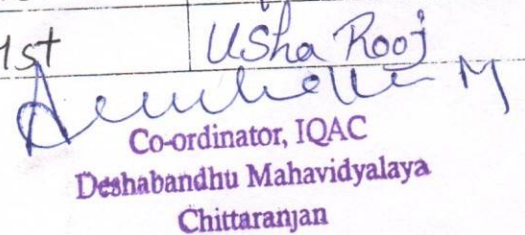 1st Usha Rooj
Co-ordinator, IQAC
Deshabandhu Mahavidyalaya
Chittaranjan